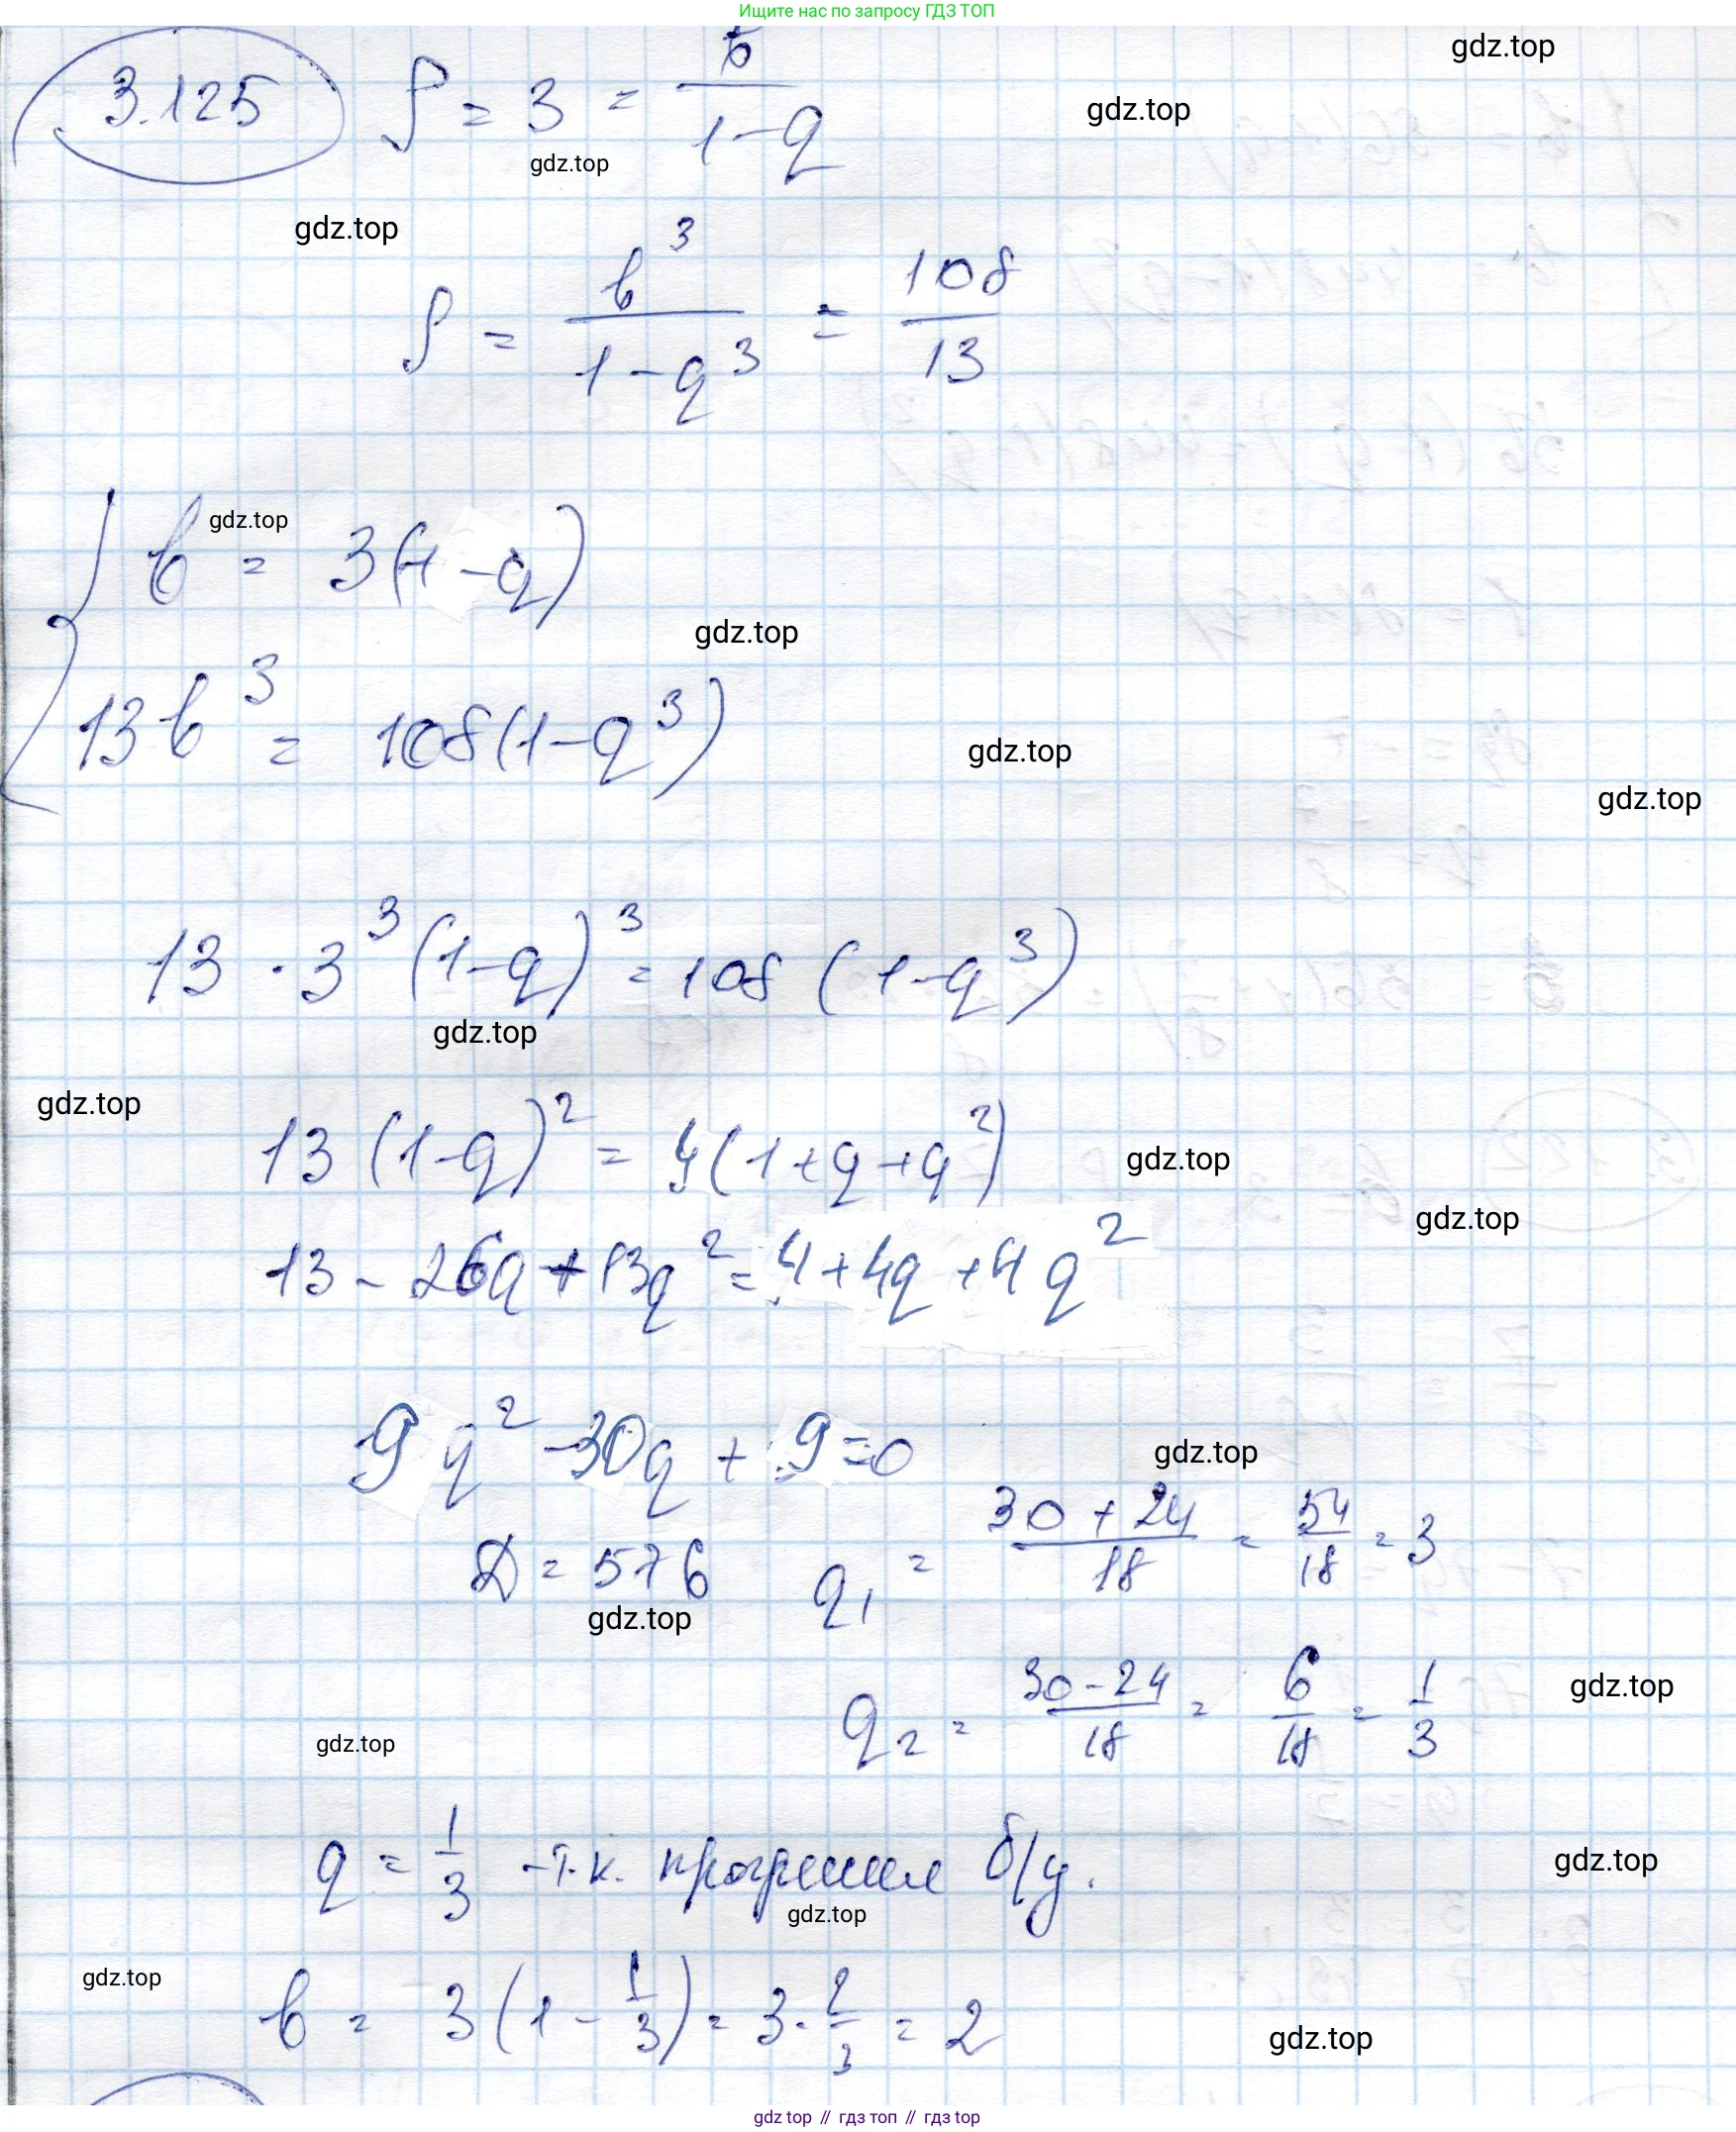 Ищите нас по запросу ГДЗ ТОП
gdz.top
3.125 S = 3 = b / (1-q)
gdz.top
gdz.top
gdz.top
S = b³ / (1-q³) = 108 / 13
gdz.top
b = 3(1-q)
gdz.top
13b³ = 108(1-q³)
gdz.top
gdz.top
13 · 3³ (1-q)³ = 108 (1-q³)
gdz.top
gdz.top
13 (1-q)² = 4(1+q+q²)
gdz.top
gdz.top
13 - 26q + 13q² = 4 + 4q + 4q²
9q² - 30q + 9 = 0
gdz.top
D = 576 q₁ = (30 + 24) / 18 = 54 / 18 = 3
gdz.top
q₂ = (30 - 24) / 18 = 6 / 18 = 1/3
gdz.top
gdz.top
q = 1/3 - т.к. прогрессия б/у.
gdz.top
gdz.top
gdz.top
b = 3(1 - 1/3) = 3 · 2/3 = 2
gdz.top
gdz top // гдз топ // гдз top